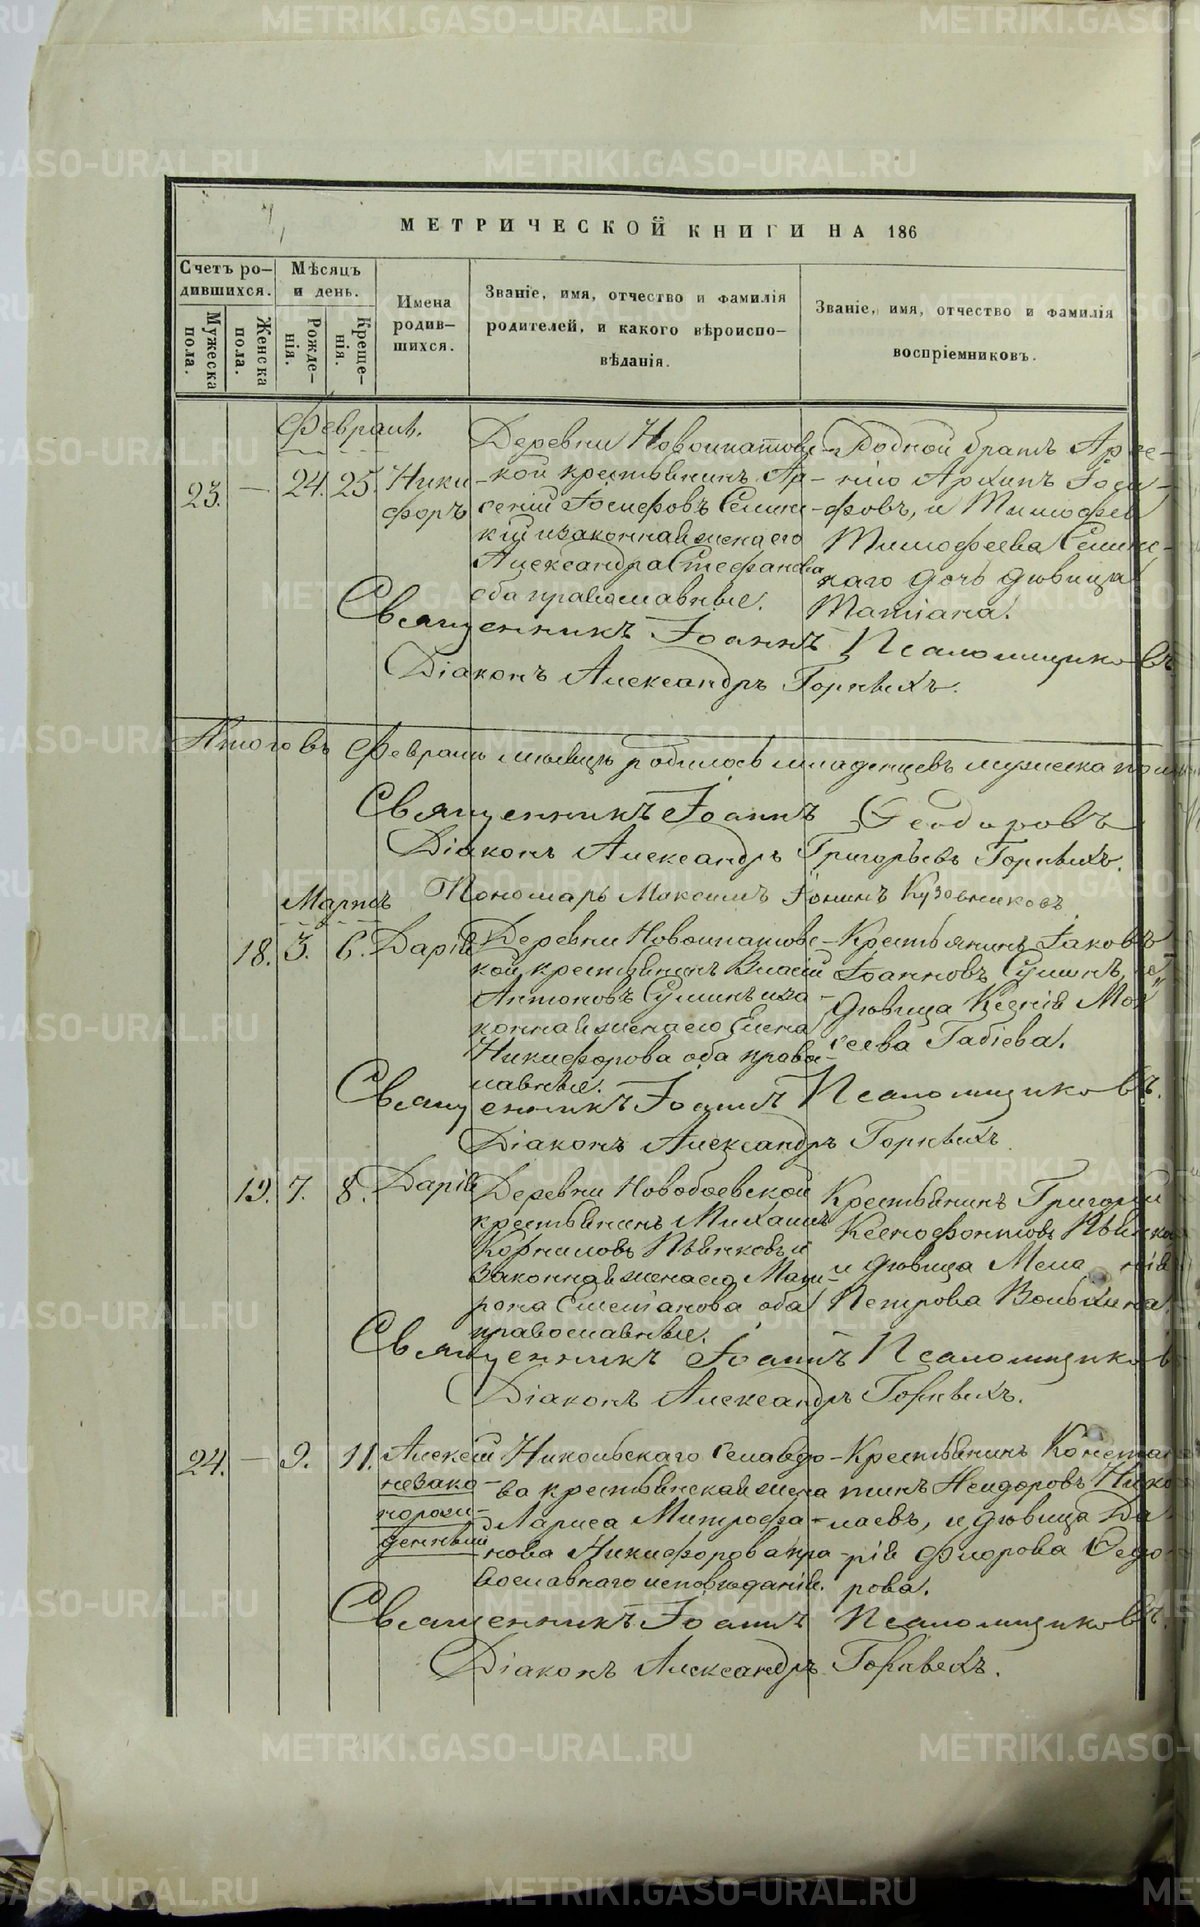 МЕТРИЧЕСКОЙ КНИГИ НА 186
Счетъ ро-
дившихся.
Мужеска
пола.
Женска
пола.
Мѣсяцъ
и день.
Рожде-
нія.
Креще-
нія.
Имена
родив-
шихся.
Званіе, имя, отчество и фамилія
родителей, и какого вѣроиспо-
вѣданія.
Званіе, имя, отчество и фамилія
воспріемниковъ.
Февраль.
23. — 24. 25.
Ники-
форъ
Деревни Новоипатовс-
кой крестьянинъ Ар-
сеній Іосифовъ
и законная жена его
Александра Стефанова
оба православные.
Родной братъ Арсе-
нію Архипъ Іоси-
фовъ, и Тимофея
Тимофеева
каго дочь дѣвица
Татіана.
Священникъ Іоаннъ Псаломщиковъ
Діаконъ Александръ Горныхъ.
Итого въ Февралѣ мѣсяцѣ родилось младенцевъ мужеска
Священникъ Іоаннъ Феодоровъ
Діаконъ Александръ Григорьевъ Горныхъ.
Пономарь Максимъ Іонинъ Кузовниковъ
Мартъ
18. 3. 6.
Дарія
Деревни Новоипатовс-
кой крестьянинъ Власій
Антоновъ Сулинъ и за-
конная жена его Елена
Никифорова оба право-
славные.
Крестьянинъ Іаковъ
Іоанновъ Сулинъ, и
дѣвица Ксенія Мои
сеева Габіева.
Священникъ Іоаннъ Псаломщиковъ.
Діаконъ Александръ Горныхъ
19. 7. 8.
Дарія
Деревни Новобоевской
крестьянинъ Михаилъ
Корниловъ Пьянковъ и
законная жена его Мат-
рона оба
православные.
Крестьянинъ Григорій
Ксенофонтовъ
и дѣвица Меланія
Петрова
Священникъ Іоаннъ Псаломщиковъ
Діаконъ Александръ Горныхъ.
24. — 9. 11.
Алексій
незако-
норож-
денный
Никольскаго села вдо-
ва крестьянская жена
Лариса Митрофа-
нова Никифорова пра-
вославнаго исповѣданія.
Крестьянинъ Констан
тинъ Никола
лаевъ, и дѣвица Да-
рія Флорова Федо-
рова.
Священникъ Іоаннъ Псаломщиковъ.
Діаконъ Александръ Горныхъ.
METRIKI.GASO-URAL.RU